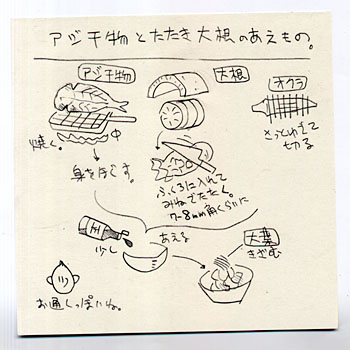 アジ干物とたたき大根のあえもの。
アジ干物
大根
オクラ
焼く。
中
さっとゆでて
切る
身をほぐす。
ふくろに入れて
みねでたたく。
7~8mm角くらいに
あえる
少し
大葉
きざむ
お通しっぽいね。